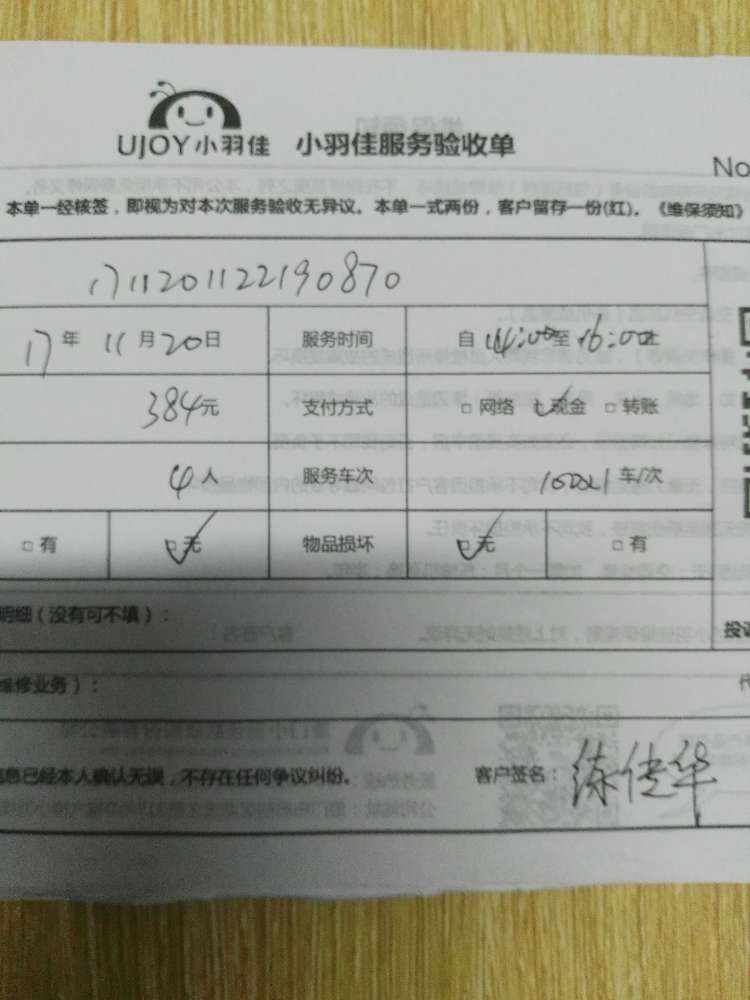 UJOY小羽佳 小羽佳服务验收单
No
本单一经核签，即视为对本次服务验收无异议。本单一式两份，客户留存一份(红)。《维保须知》
1711201122190870
17年 11月20日 服务时间 自 14:00至 16:00止
384元 支付方式 □ 网络 □ 现金 □ 转账
4人 服务车次 车/次
□ 有 □ 无 物品损坏 □ 无 □ 有
明细（没有可不填）： 投诉
维修业务）： 代
信息已经本人确认无误，不存在任何争议纠纷。 客户签名：练传华